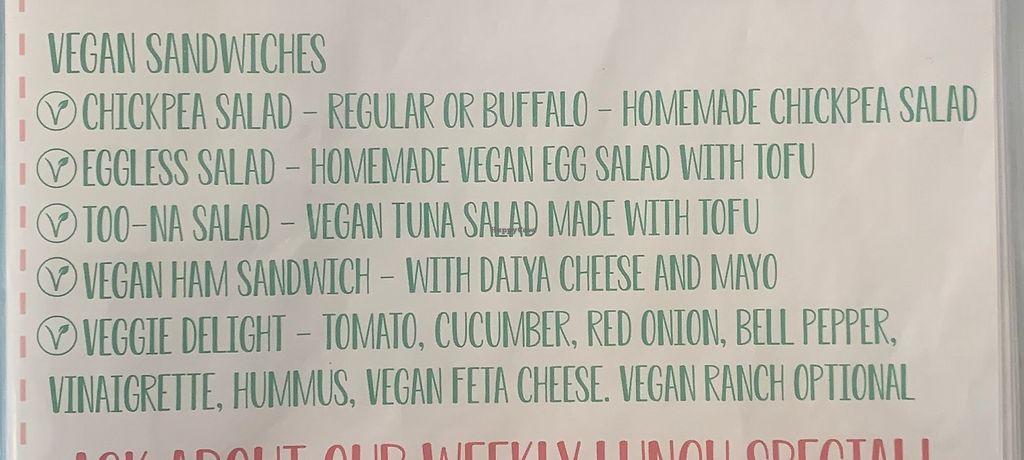 VEGAN SANDWICHES
CHICKPEA SALAD - REGULAR OR BUFFALO - HOMEMADE CHICKPEA SALAD
EGGLESS SALAD - HOMEMADE VEGAN EGG SALAD WITH TOFU
TOO-NA SALAD - VEGAN TUNA SALAD MADE WITH TOFU
HappyCow
VEGAN HAM SANDWICH - WITH DAIYA CHEESE AND MAYO
VEGGIE DELIGHT - TOMATO, CUCUMBER, RED ONION, BELL PEPPER,
VINAIGRETTE, HUMMUS, VEGAN FETA CHEESE. VEGAN RANCH OPTIONAL
ASK ABOUT OUR WEEKLY LUNCH SPECIAL!